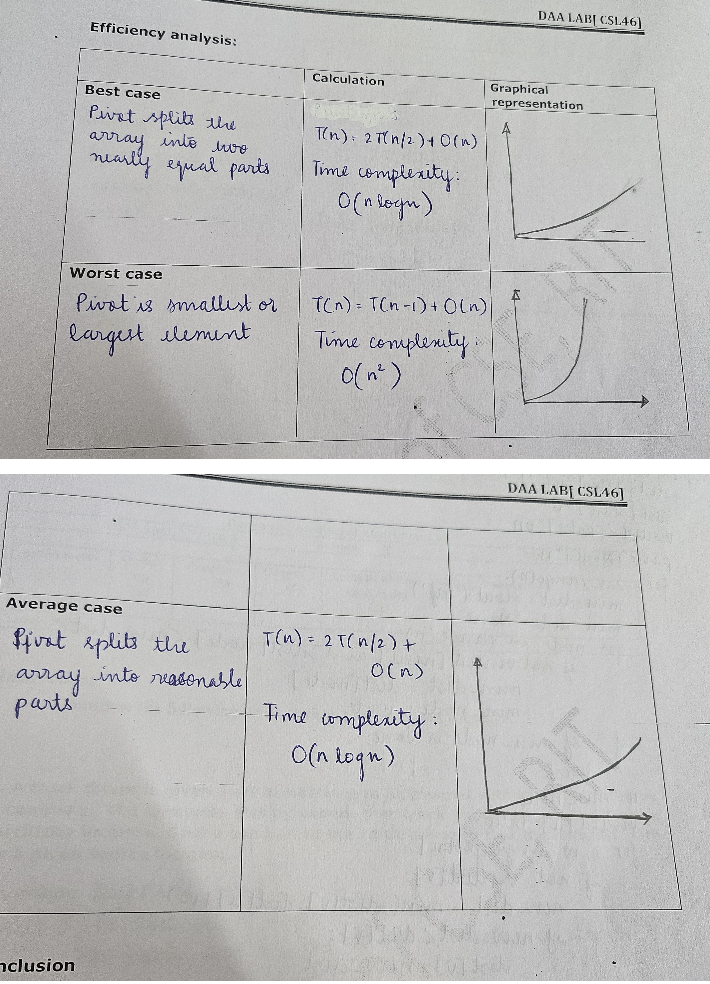 DAA LAB[ CSL46]
Efficiency analysis:
Calculation
Graphical
representation
Best case
Pivot splits the
array into two
nearly equal parts
T(n) = 2T(n/2) + O(n)
Time complexity:
O(n logn)
Worst case
Pivot is smallest or
largest element
T(n) = T(n-1) + O(n)
Time complexity:
O(n²)
of CSE, RIT
DAA LAB[ CSL46]
Average case
Pivot splits the
array into reasonable
parts
T(n) = 2T(n/2) +
O(n)
Time complexity:
O(n logn)
CSE, RIT
nclusion